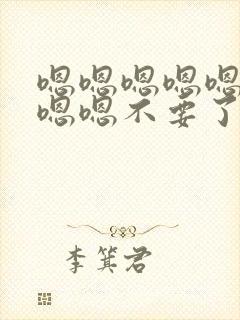 嗯嗯嗯嗯嗯
嗯嗯不要了
李箕君